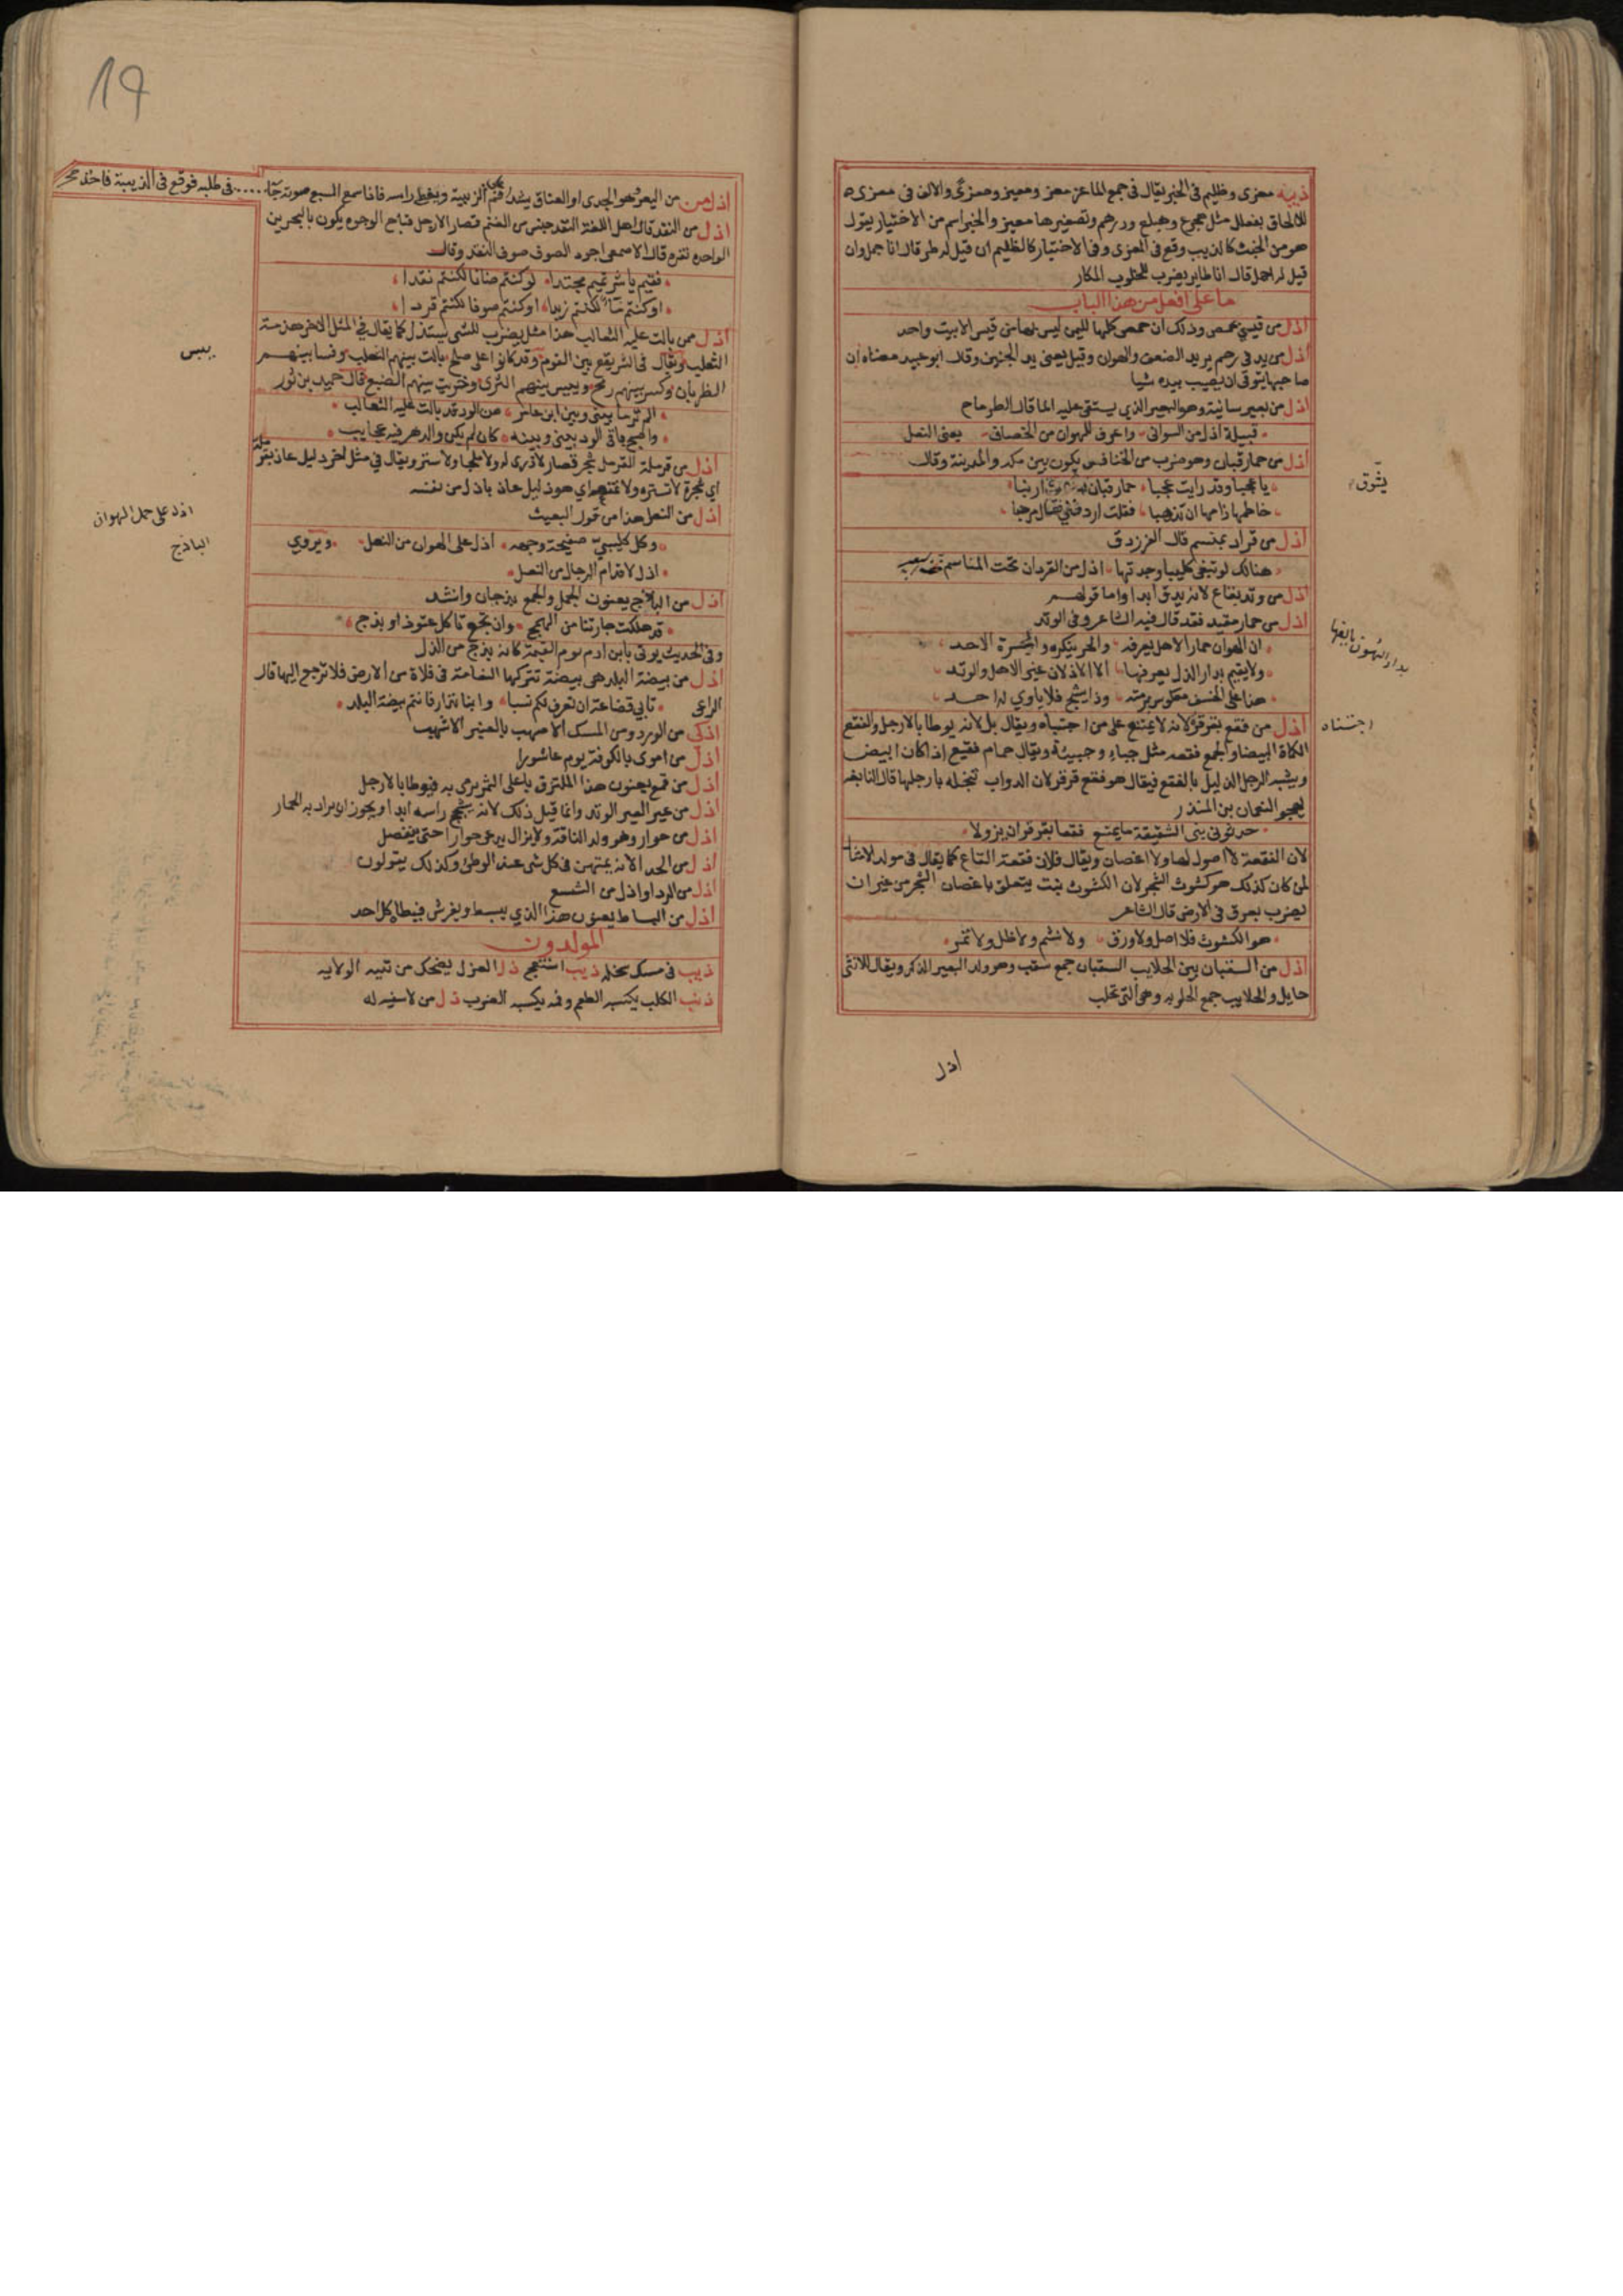 ذيبة معزى وظليم في الخبر يقال في جمع الماعز معز ومعيز ومعزى والالف في معزى
للالحاق بفعلل مثل هجرع وهبلع ودرهم وتصغيرها معيز والخبر اسم من الاختبار يقول
هو من الخبث كالذيب وقع في المعزى وفي الاختبار كالظليم ان قيل له طر قال انا جمل وان
قيل له احمل قال انا طاير يضرب للخلوب المكار
ما على افعل من هذا الباب
اذل من قيسي بحمص وذلك ان حمص كلها لليمن ليس بها من قيس الا بيت واحد
اذل من يد في رحم يريد الضعف والهوان وقيل يعني يد الجنين وقال ابو عبيد معناه ان
صاحبها يتوقى ان يصيب بيده شيا
اذل من بعير سانية وهو البعير الذي يستقى عليه الما قال الطرماح
قبيلة اذل من السواني واعرف للهوان من الخصاف يعني النعل
اذل من حمار قبان وهو ضرب من الخنافس يكون بين مكة والمدينة وقال
يا عجبا وقد رايت عجبا حمار قبان يسوق ارنبا
خاطمها زامها ان تذهبا فقلت اردفني فقال مرحبا
اذل من قراد بمنسم قال الفرزدق
هنالك لو تبغي كليبا وجدتها اذل من القردان تحت المناسم
اذل من وتد بقاع لانه يدق ابدا واما قولهم
اذل من حمار مقيد فقد قال فيه الشاعر وفي الوتد
ان الهوان حمار الاهل يعرفه والحر ينكره والجسرة الاجد
ولا يقيم بدار الذل يعرفها الا الاذلان عير الاهل والوتد
هذا على الخسف معكوس برمته وذا يشج فلا ياوي له احد
اذل من فقع بقرقر لانه لا يمتنع على من اجتباه ويقال بل لانه يوطا بالارجل والفقع
الكماة البيضا والجمع فقعة مثل جباء وجبيئة ويقال حمام فقيع اذا كان ابيض
ويشبه الرجل الذليل بالفقع فيقال هو فقع قرقر لان الدواب تنجله بارجلها قال النابغه
يهجو النعمان بن المنذر
حدثوني بني الشقيقة ما يمنع فقعا بقرقر ان يزولا
لان الفقعة لا اصول لها ولا اغصان ويقال فلان فقعة القاع كما يقال في مولد الامثا
لمن كان كذلك هو كشوث الشجر لان الكشوث نبت يتعلق باغصان الشجر من غير ان
يضرب بعرق في الارض قال الشاعر
هو الكشوث فلا اصل ولا ورق ولا نسيم ولا ظل ولا ثمر
اذل من السقبان بين الحلايب السقبان جمع سقب وهو ولد البعير الذكر ويقال للانثى
حايل والحلايب جمع الحلوبه وهي التي تحلب
اذل
اجتناه
اذل من من اليعر وهو الجدي او العناق يشد على فم الزبية ويغطى راسه فاذا سمع السبع صوته جا في طلبه فوقع في الزبية فاخذ
اذل من النقد قال اهل اللغة النقد جنس من الغنم قصار الارجل قباح الوجوه يكون بالبحرين
الواحده نقده قال الاصمعي اجود الصوف صوف النقد وقال
فقيم يا شر تميم محتدا لو كنتم ضانا لكنتم نقدا
او كنتم ما لكنتم زبدا او كنتم صوفا لكنتم قردا
اذل ممن بالت عليه الثعالب هذا مثل يضرب للشي يستذل كما يقال في المثل الاخر هدمة
الثعلب ويقال في الشر يقع بين القوم وقد كانوا على صلح بالت بينهم الثعلب وفسا بينهم
الظربان وكسر بينهم رمح ويبس بينهم الثرى وخريت بينهم الضبع قال حميد بن ثور
الم تر ما بيني وبين ابن عامر من الود قد بالت عليه الثعالب
واصبح باقي الود بيني وبينه كان لم يكن والدهر فيه عجايب
اذل من قرملة القرمل شجر قصار لا ذرى له ولا ملجا ولا ستر ويقال في مثل اخر ذليل عاذ بقرملة
اي بشجرة لا تستره ولا تمنعه اي هو ذليل عاذ باذل من نفسه
اذل من النعل هذا من قول البعيث
وكل كليبي صفيحة وجهه اذل على الهوان من النعل ويروى
اذل لاقدام الرجال من النعل
اذل من البذج يعنون الحمل والجمع بذجان وانشد
قد هلكت جارتنا من الهمج وان تجع تاكل عتودا او بذج
وفي الحديث يوتى بابن ادم يوم القيمة كانه بذج من الذل
اذل من بيضة البلد هي بيضة تتركها النعامة في فلاة من الارض فلا ترجع اليها قال
الراعي تابى قضاعة ان تعرف لكم نسبا وابنا نزار فانتم بيضة البلد
اذكى من الورد ومن المسك الاصهب والعنبر الاشهب
اذل من اموي بالكوفة يوم عاشورا
اذل من قمع يعنون هذا الملتزق باعلى التمر يرمى به فيوطا بالارجل
اذل من عير العير الوتد وانما قيل ذلك لانه يشج راسه ابدا ويجوز ان يراد به الحمار
اذل من حوار وهو ولد الناقة ولا يزال يدعى حوارا حتى ينفصل
اذل من الحذا لانه يمتهن في كل شي عند الوطي وكذلك يقولون
اذل من الردا واذل من الشسع
اذل من البساط يعنون هذا الذي يبسط ويفرش فيطاه كل احد
المولدون
ذيب في مسك سخله ذيب استنعج ذل العزل يضحك من تيه الولايه
ذنب الكلب يكسبه الطعم وفمه يكسبه الضرب ذل من لا سفيه له
يبس
اذل على حمل الهوان
الباذج
19